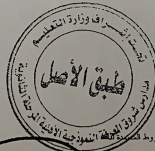 تحت إشراف وزارة التعليم
طبق الأصل
مدارس شروق المعرفة النموذجية الأهلية المرحلة الثانوية